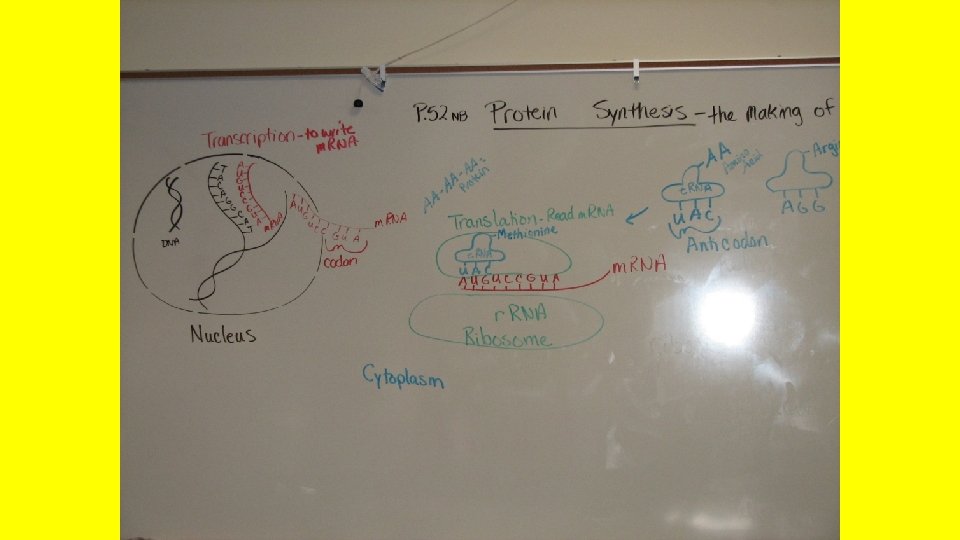 P.52 NB Protein Synthesis - the making of
Transcription - to write
mRNA
DNA
AUGUCCGUA
mRNA
AUGUCC GUA
mRNA
codon
Nucleus
AA-AA-AA=
Protein
Translation - Read mRNA
Methionine
tRNA
UAC
AUGUCCGUA
mRNA
rRNA
Ribosome
Cytoplasm
AA
Amino
Acid
tRNA
UAC
Anticodon
Argi
AGG